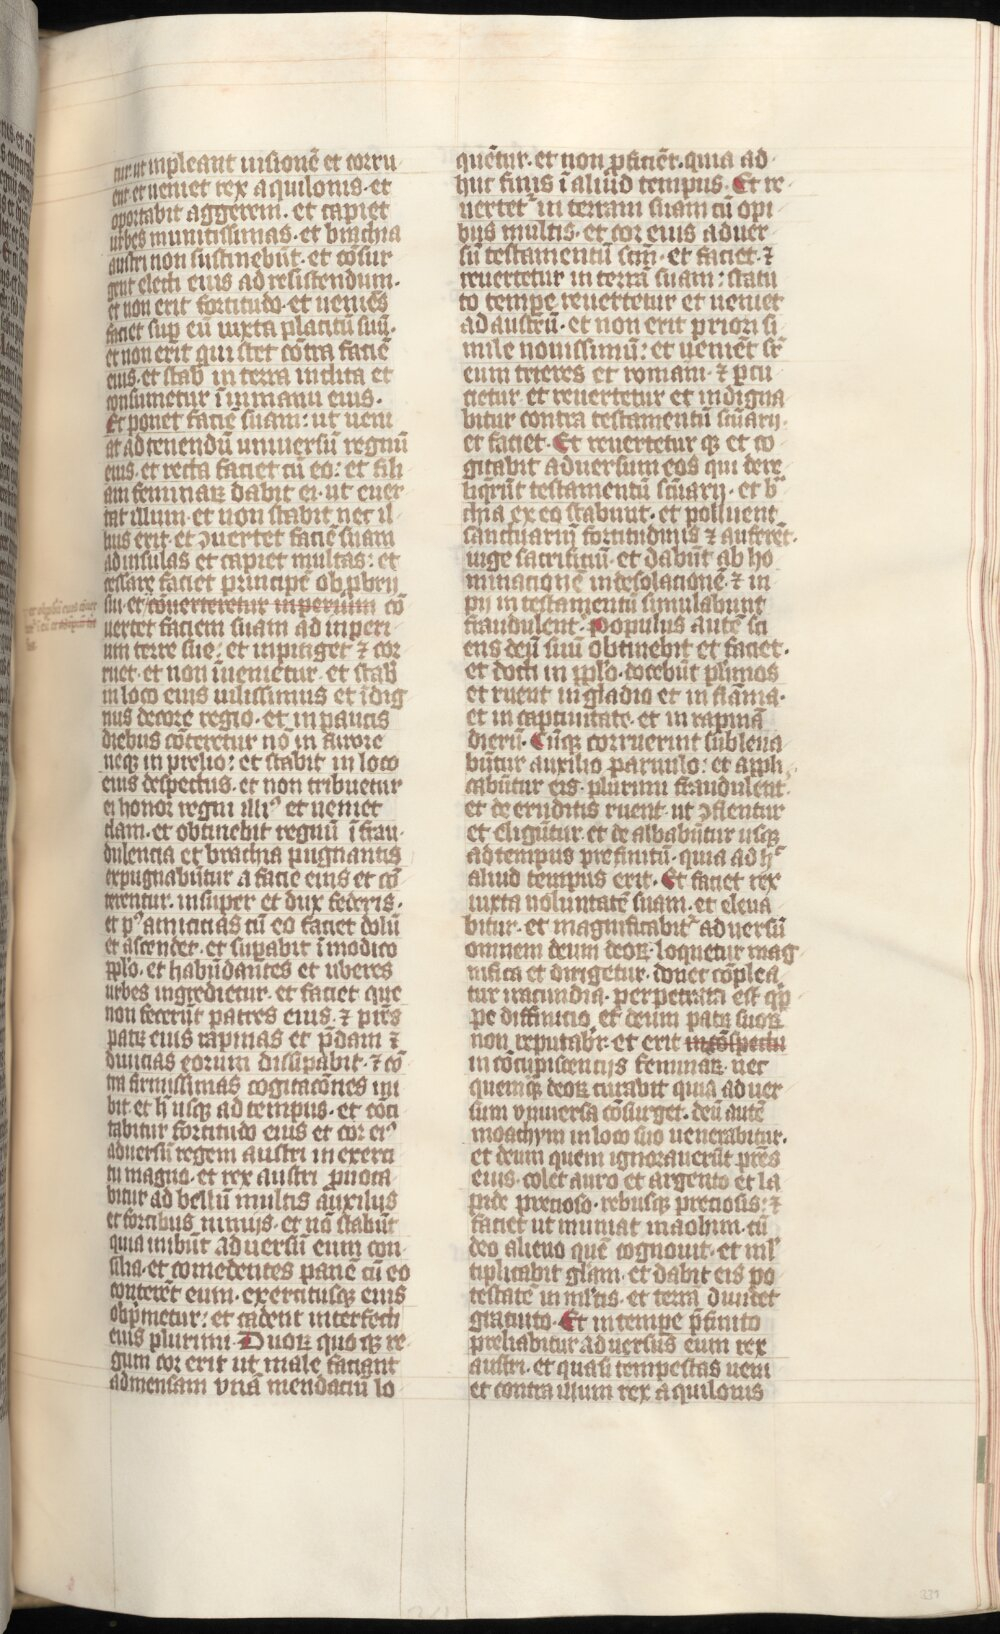 tur ut inpleant uisionē et corru
ent et ueniet rex aquilonis et
oportabit aggerem. et capiet
urbes munitissimas. et brachia
austri non sustinebūt. et cōsur
gent electi eius ad resistendum.
et non erit fortitudo. et ueniēs
faciet suꝑ eū iuxta placitū suū.
et non erit qui stet cōtra faciē
eius. et stab̄ in terra inclita et
consumetur ī inmanu eius.
Et ponet faciē suam: ut ueni
at ad tenendū uniuersū regnū
eius. et recta faciet cū eo: et fili
am feminaꝝ dabit ei. ut euer
tat illum. et non stabit nec il
lius erit. et ꝯuertet faciē suam
ad insulas et capiet multas: et
cessare faciet principē obꝓbrij
sui. et cōuerteretur inperium cō
uertet faciem suam ad inperi
um terre sue: et inpinget et cor
ruet. et non īuenietur. et stab̄
in loco eius uilissimus et īdig
nus decore regio. et in paucis
diebus cōteretur nō in furore
neqꝫ in prelio: et stabit in loco
eius despectus. et non tribuetur
ei honor regni illiꝰ et ueniet
clam. et obtinebit regnū ī frau
dulencia et brachia pugnantis
expugnabūtur a facie eius et cō
terentur. insuper et dux federis.
et pꝰ amicicias cū eo faciet dolū
et ascendet. et suꝑabit ī modico
pplo. et habūdantes et uberes
urbes ingredietur. et faciet que
non fecerūt patres eius. ⁊ pr̄es
patꝝ eius rapinas et p̄dam ⁊
diuicias eorum dissipabit. ⁊ cō
tra firmissimas cogitacōnes ini
bit. et h̄ usqꝫ ad tempus. et cōci
tabitur fortitudo eius et cor eiꝰ
aduersū regem austri in exerci
tu magno. et rex austri ꝓuoca
bitur ad bellū multis auxilijs
et fortibus nimijs. et nō stabūt
quia inibūt aduersū eum con
silia. et comedentes panē cū eo
conterēt eum. exercitusqꝫ eius
obp̄metur: et cadent interfecti
eius plurimi. Duoꝝ quoqꝫ re
gum cor erit ut male faciant
ad mensam vnā mendaciū lo
quētur. et non ꝓficiēt. quia ad
huc finis ī aliud tempus. Et re
uertet᷑ in terram suam cū opi
bus multis. et cor eius aduer
sū testamentū sc̄m. et faciet. ⁊
reuertetur in terrā suam: statu
to tempe reuertetur et ueniet
ad austrū. et non erit priori si
mile nouissimū: et ueniēt sr̄
eum trieres et romani. ⁊ ꝑcu
cietur et reuertetur et indigna
bitur contra testamentū scūarij.
et faciet. Et reuertetur qꝫ et co
gitabit aduersum eos qui dere
liqr̄ūt testamentū scūarij. et b͛
chia ex eo stabunt. et polluent
sanctuariū fortitudinis ⁊ auferēt
iuge sacrificiū. et dabūt abho
minacionē in desolacionē. ⁊ in
pij in testamentū simulabunt
fraudulent͛. Populus autē sci
ens deū suū obtinebit et faciet.
et docti in pplo. docebūt plimos
et ruent in gladio et in flāma.
et in captiuitate. et in rapinā
dierū. Cūqꝫ corruerint subleua
būtur auxilio paruulo: et appli
cabūtur eis. plurimi fraudulent͛.
et de eruditis ruent. ut ꝯflentur
et eligūtur. et dealbabūtur usqꝫ
ad tempus prefinitū. quia adhᶜ
aliud tempus erit. Et faciet rex
iuxta uoluntatē suam. et eleua
bitur. et magnificabit᷑ aduersū
omnem deum deoꝝ loquetur mag
nifica et dirigetur. donec cōplea
tur iracundia. perpetrata est qꝓ
pe diffinicio et deum patꝝ suoꝝ
non reputab͛. et erit in cōspectu
in cōcupiscencijs feminaꝝ. nec
quemqꝫ deoꝝ curabit quia aduer
sum vniuersa cōsurget. deū autē
moazym in loco suo uenerabitur.
et deum quem ignorauerūt pr̄es
eius. colet auro et argento et la
pide precioso. rebusqꝫ preciosis: ⁊
faciet ut muniat maozim. cū
deo alieno quē cognouit. et ml̓
tiplicabit gl̄iam. et dabit eis po
testatē in ml̓tis. et terrā diuidet
gratuito. Et in tempe p̄finito
preliabitur aduersus eum rex
austri. et quasi tempestas ueni
et contra illum rex aquilonis
331